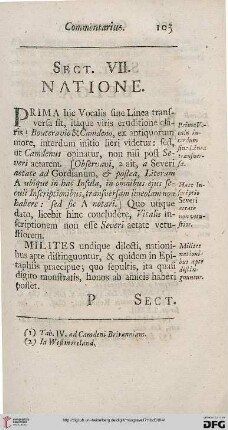 Commentarius. 105
SECT. VII.
NATIONE.
PRIMA hic Vocalis sine Linea trans-
versa sit, itaque viris eruditione cla-
ris, Bouteroüio & Camdeno, ex antiquorum
more, interdum initio fieri videtur: sed,
ut Camdenus opinatur, non nisi post Se-
veri aetatem. [Observavi, ait, a Severi
aetate ad Gordianum, & postea, Literam
A ubique in hac Insula, in omnibus ejus se-
culi Inscriptionibus, transversam lineolam non
habere: sed sic Λ notari.] Quo utique
dato, licebit hinc concludere, Vitalis in-
scriptionem non esse Severi aetate vetu-
stiorem.
MILITES undique dilecti, nationi-
bus apte distinguuntur, & quidem in Epi-
taphiis praecipue; quo sepultis, ita quasi
digito monstratis, honos ab amicis haberi
posset.
Prima Vo-
calis in-
terdum
sine Linea
transver-
sa.
Haec In-
scriptio
Severi
aetate
non vetu-
stior.
Milites
nationi-
bus apte
distin-
guuntur.
P SECT.
(1) Tab. IV. ad Camdeni Britanniam.
(2) In Westmoreland.
DFG